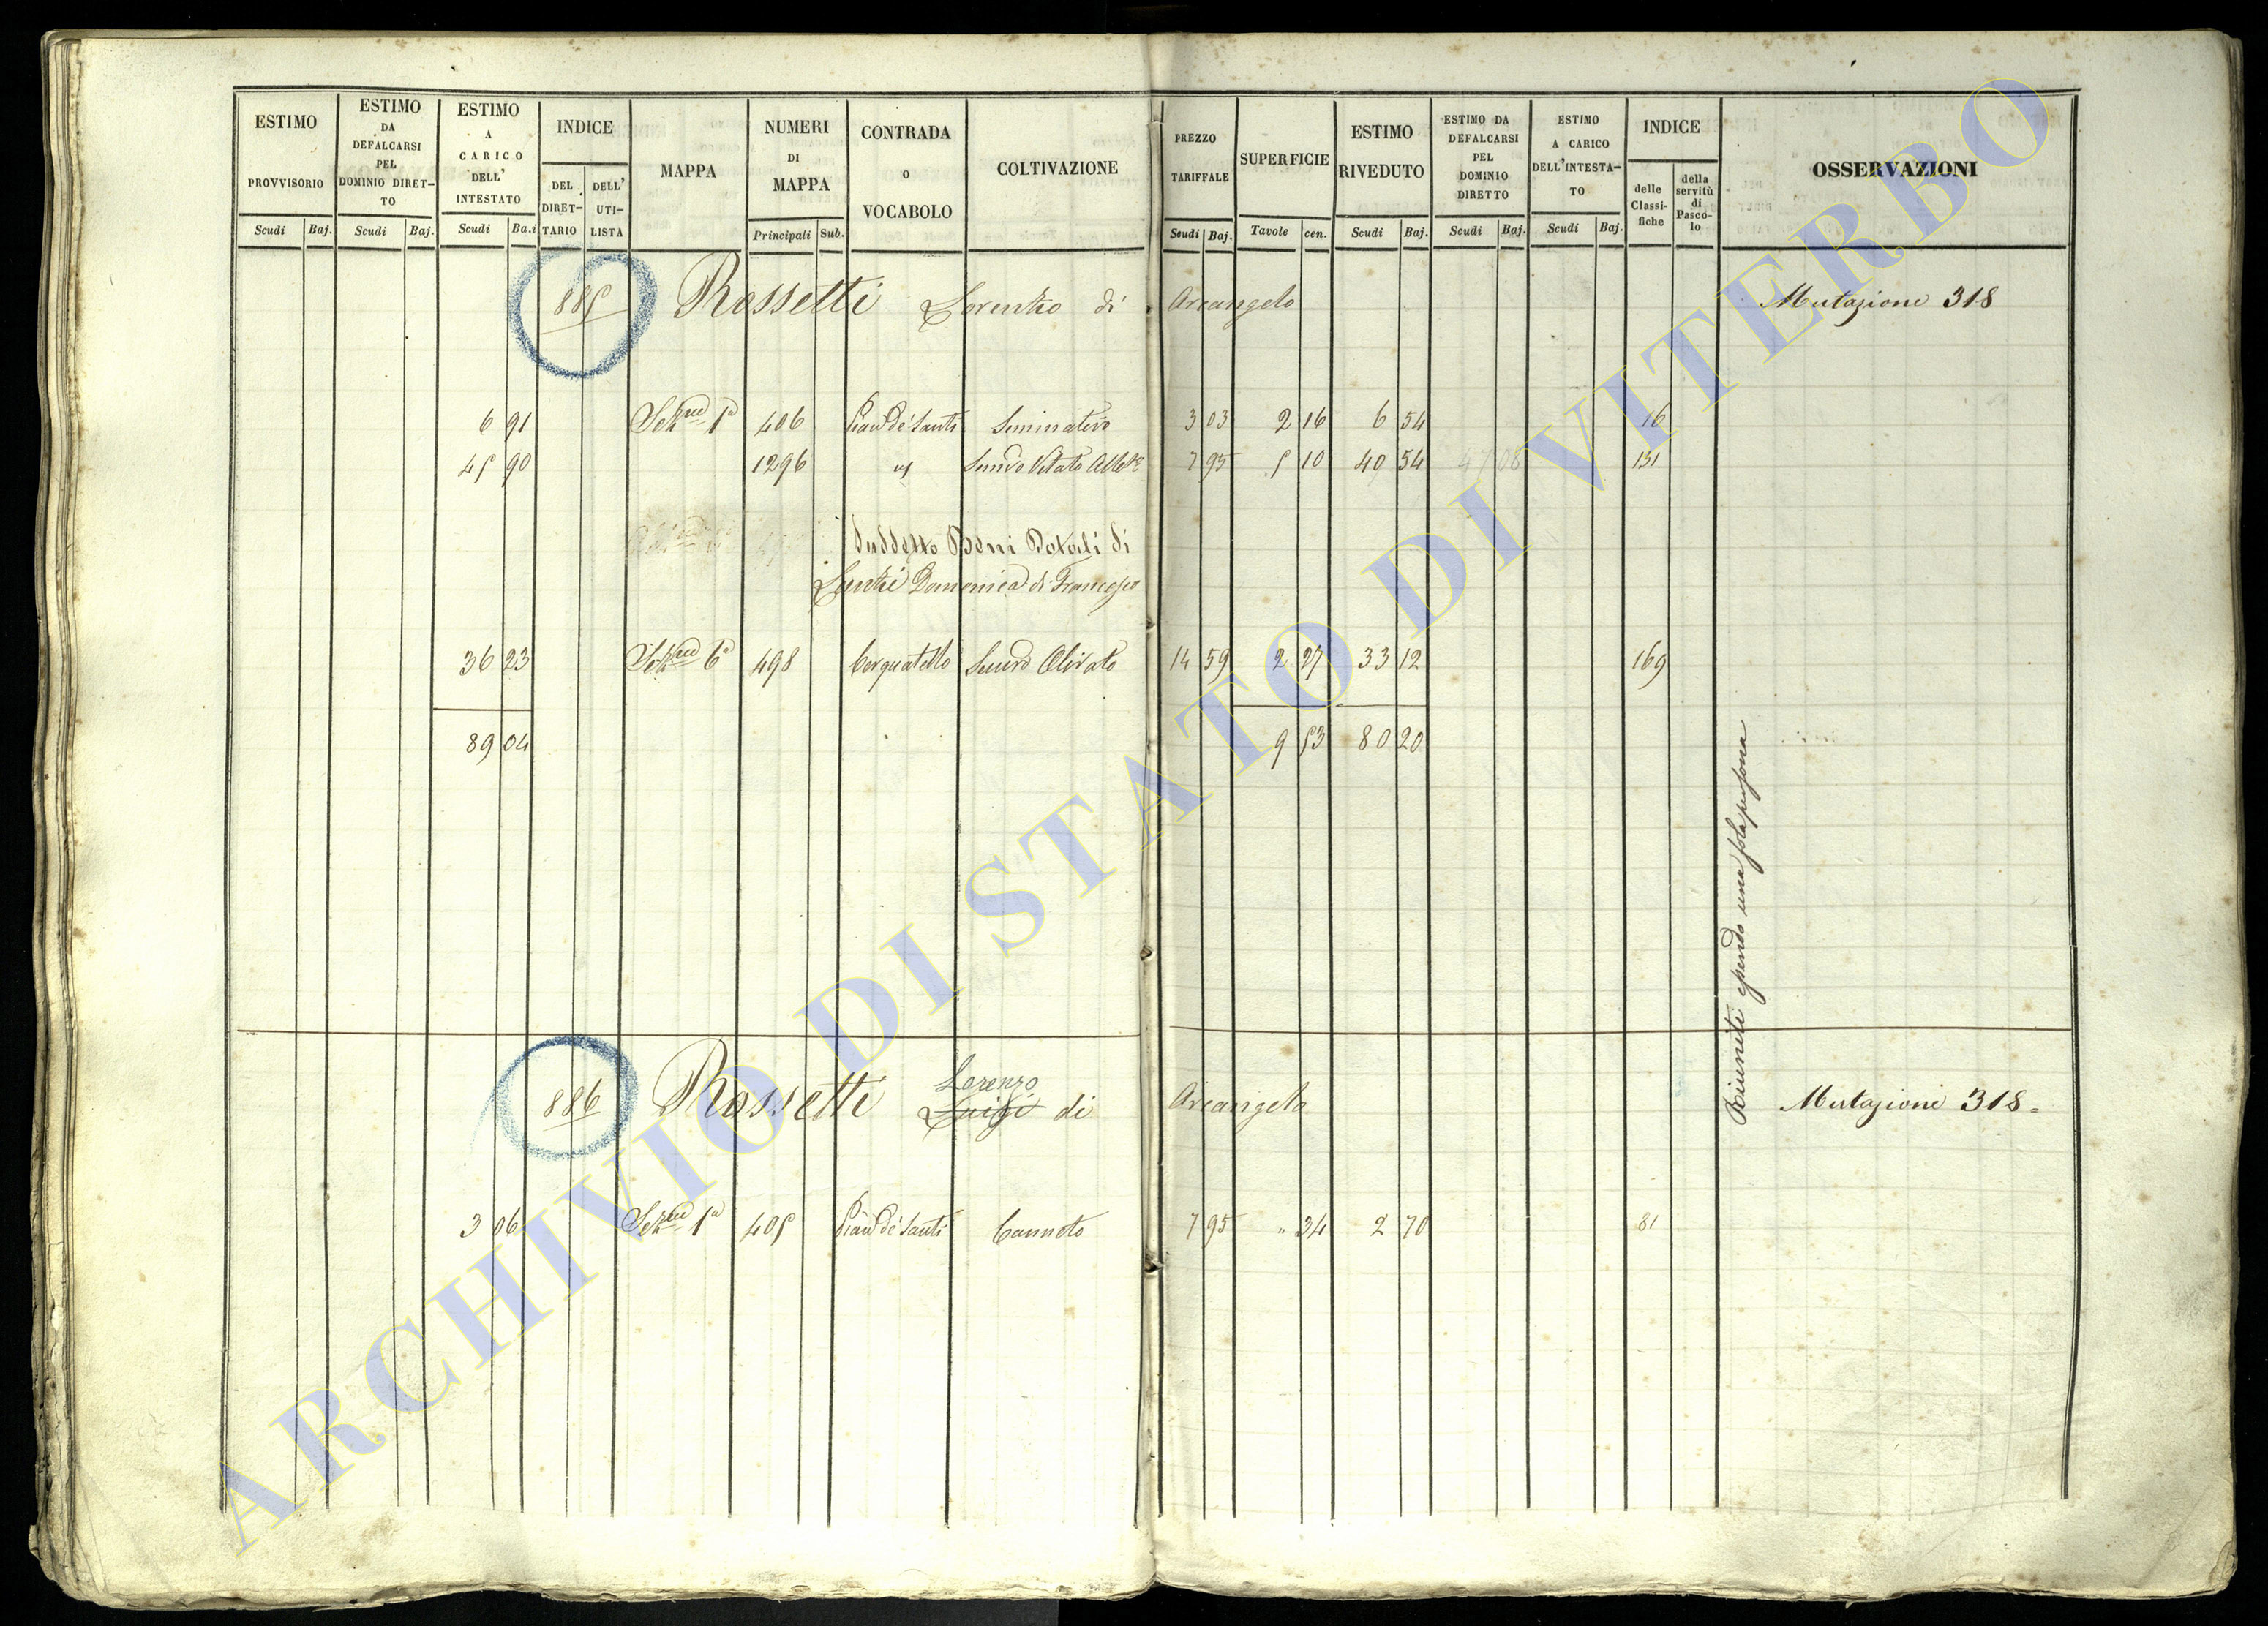 ESTIMO PROVVISORIO Scudi Baj.
ESTIMO DA DEFALCARSI PEL DOMINIO DIRET-TO Scudi Baj.
ESTIMO A CARICO DELL' INTESTATO Scudi Ba.i
INDICE DEL DIRET-TARIO DELL' UTI-LISTA
MAPPA
NUMERI DI MAPPA Principali Sub.
CONTRADA O VOCABOLO
COLTIVAZIONE
PREZZO TARIFFALE Scudi Baj.
SUPERFICIE Tavole cen.
ESTIMO RIVEDUTO Scudi Baj.
ESTIMO DA DEFALCARSI PEL DOMINIO DIRETTO Scudi Baj.
ESTIMO A CARICO DELL'INTESTA-TO Scudi Baj.
INDICE delle Classi-fiche della servitù di Pasco-lo
OSSERVAZIONI
885 Rossetti Lorenzo di Arcangelo Mutazione 318
6 91 Sezne 1a 406 Pian de Santi Seminativo 3 03 2 16 6 54 16
45 90 1296 " Semvo Vitato Albto 7 95 5 10 40 54 47 08 131
Suddetto Beni Dotali di
Domenica di Francesco
36 23 Sezne 6a 498 Cerquatello Semvo Olivato 14 59 2 27 33 12 169
89 04 9 53 80 20
Riuniti essendo una sola persona
Lorenzo
886 Rossetti Luigi di Arcangelo Mutazione 318=
3 06 Sezne 1a 405 Pian de Santi Canneto 7 95 " 34 2 70 81
ARCHIVIO DI STATO DI VITERBO